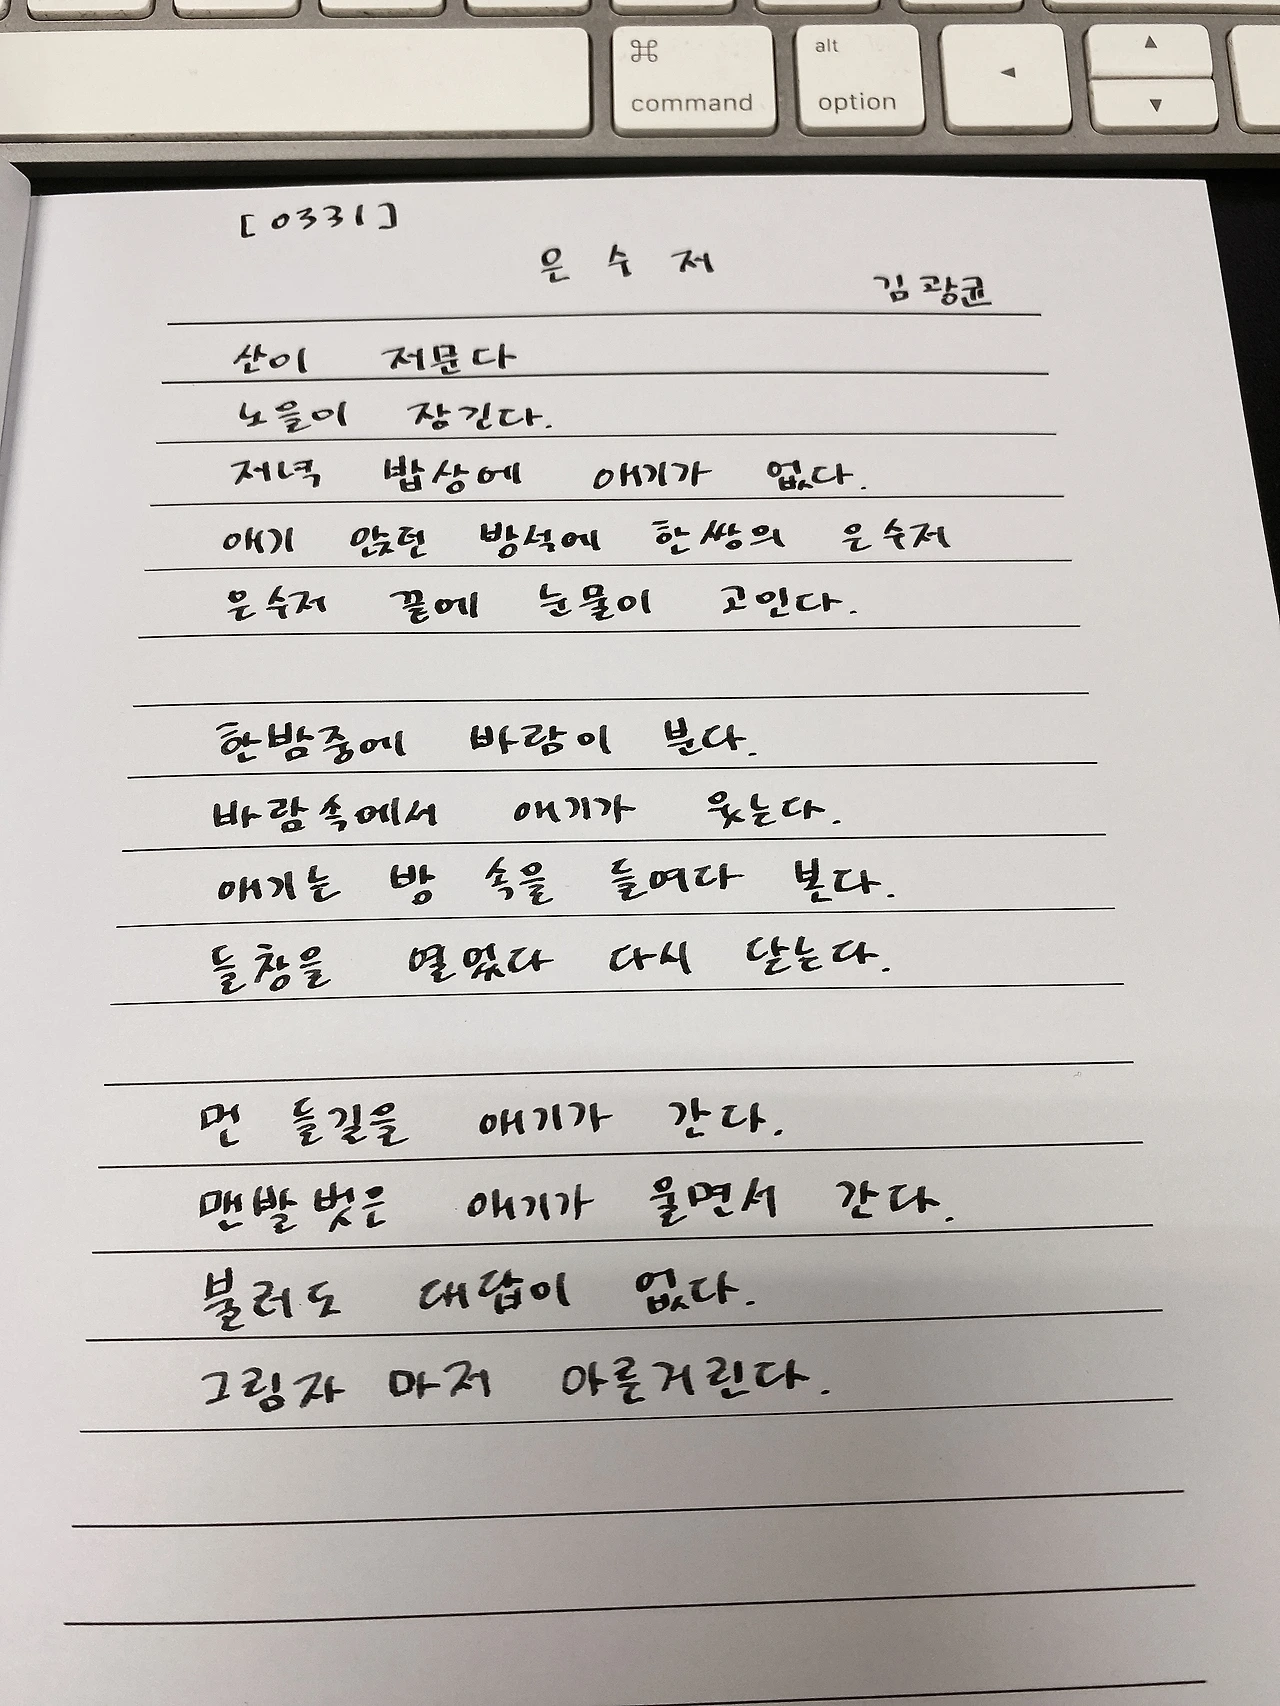 ⌘
alt
command
option
◄
▲
▼
[0331]
은 수 저
김광균
산이 저문다
노을이 잠긴다.
저녁 밥상에 애기가 없다.
애기 앉던 방석에 한쌍의 은수저
은수저 끝에 눈물이 고인다.
한밤중에 바람이 분다.
바람속에서 애기가 웃는다.
애기는 방 속을 들여다 본다.
들창을 열었다 다시 닫는다.
먼 들길을 애기가 간다.
맨발벗은 애기가 울면서 간다.
불러도 대답이 없다.
그림자 마저 아른거린다.